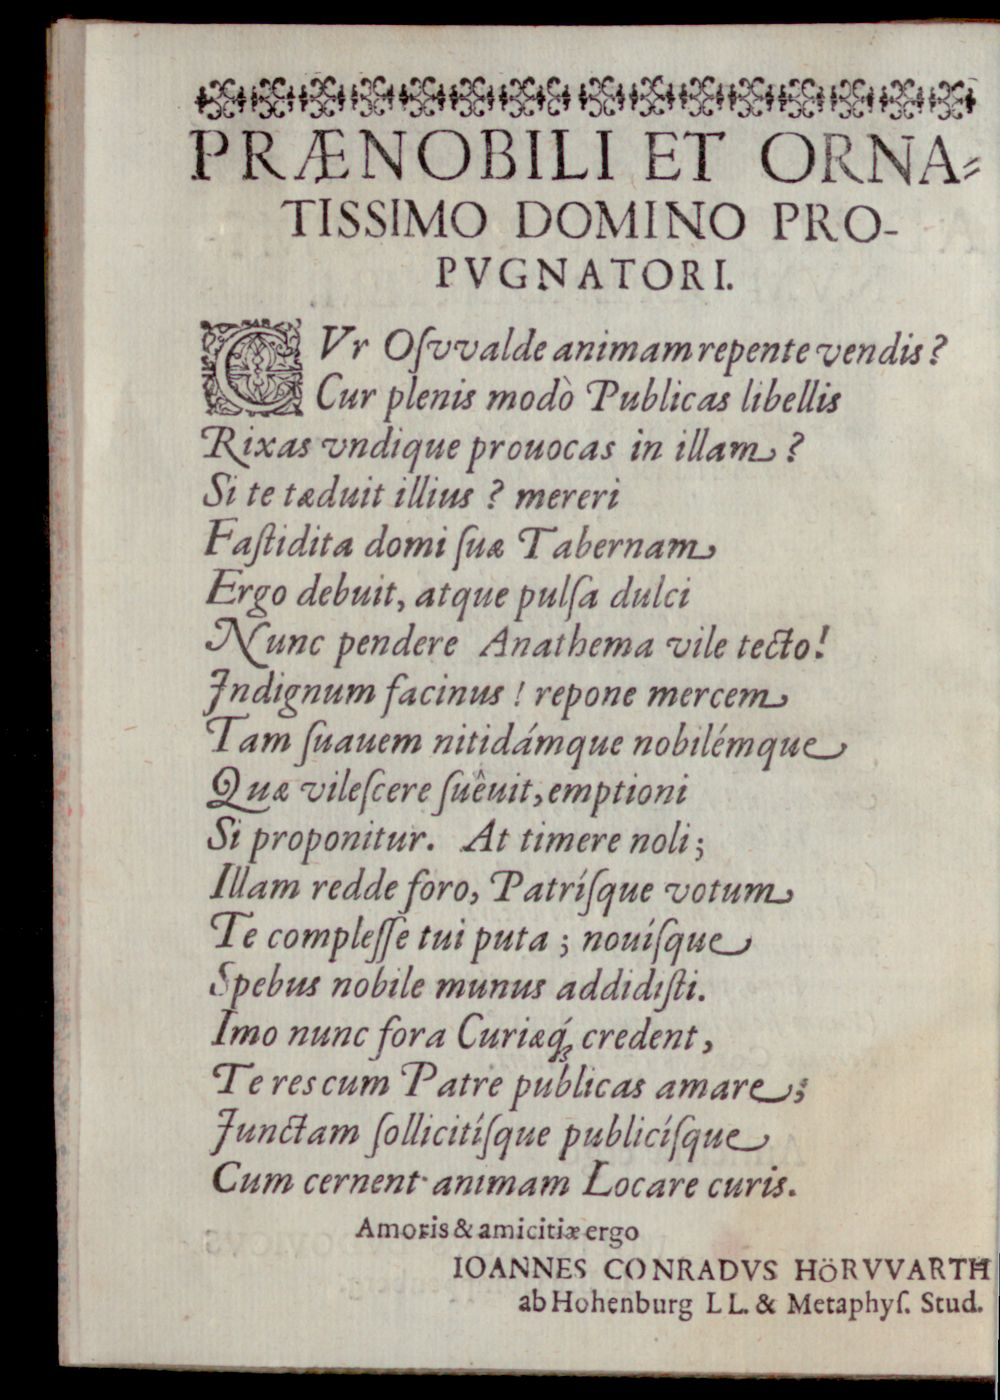 PRÆNOBILI ET ORNA=
TISSIMO DOMINO PRO-
PVGNATORI.
CVr Oſvvalde animam repente vendis?
Cur plenis modò Publicas libellis
Rixas vndique prouocas in illam?
Si te tæduit illius? mereri
Faſtidita domi ſuæ Tabernam
Ergo debuit, atque pulſa dulci
Nunc pendere Anathema vile tecto!
Jndignum facinus! repone mercem
Tam ſuauem nitidámque nobilémque
Quæ vileſcere ſuêuit, emptioni
Si proponitur. At timere noli;
Illam redde foro, Patríſque votum
Te compleſſe tui puta; nouíſque
Spebus nobile munus addidiſti.
Imo nunc fora Curiæq́; credent,
Te res cum Patre publicas amare;
Junctam ſollicitíſque publicíſque
Cum cernent animam Locare curis.
Amoris & amicitiæ ergo
IOANNES CONRADVS HöRVVARTH
ab Hohenburg LL. & Metaphyſ. Stud.